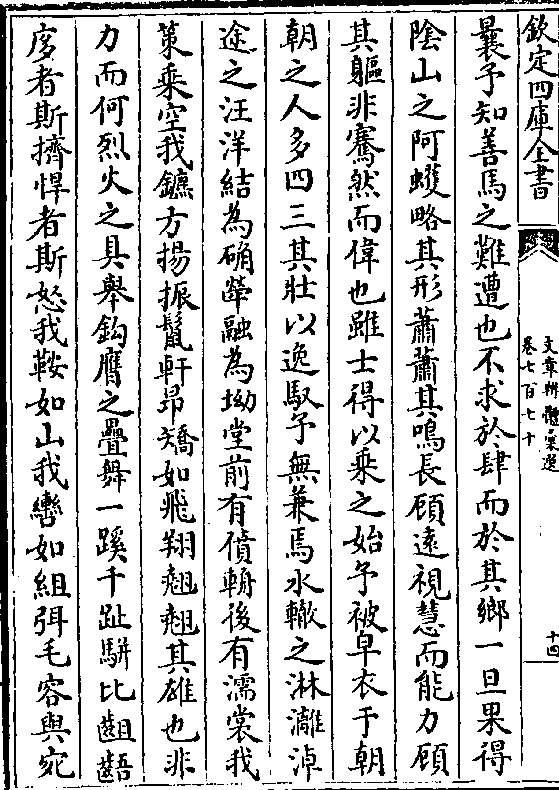 欽定四庫全書
文章辨體彚選
卷七百七十
十四
曩予知善馬之難遭也不求於肆而於其鄉一旦果得
陰山之阿蠖略其形蕭蕭其鳴長顧遠視慧而能力顧
其軀非騫然而偉也雖士得以乘之始予被皁衣于朝
朝之人多四三其壯以逸馭予無兼焉水轍之淋灕淖
途之汪洋結為确犖融為坳堂前有僨輈後有濡裳我
策乘空我鑣方揚振鬛軒昂矯如飛翔翹翹其雄也非
力而何烈火之具舉鈎膺之疊舞一蹊千趾駢比齟齬
㢋者斯擠悍者斯怒我鞍如山我轡如組弭毛容與宛